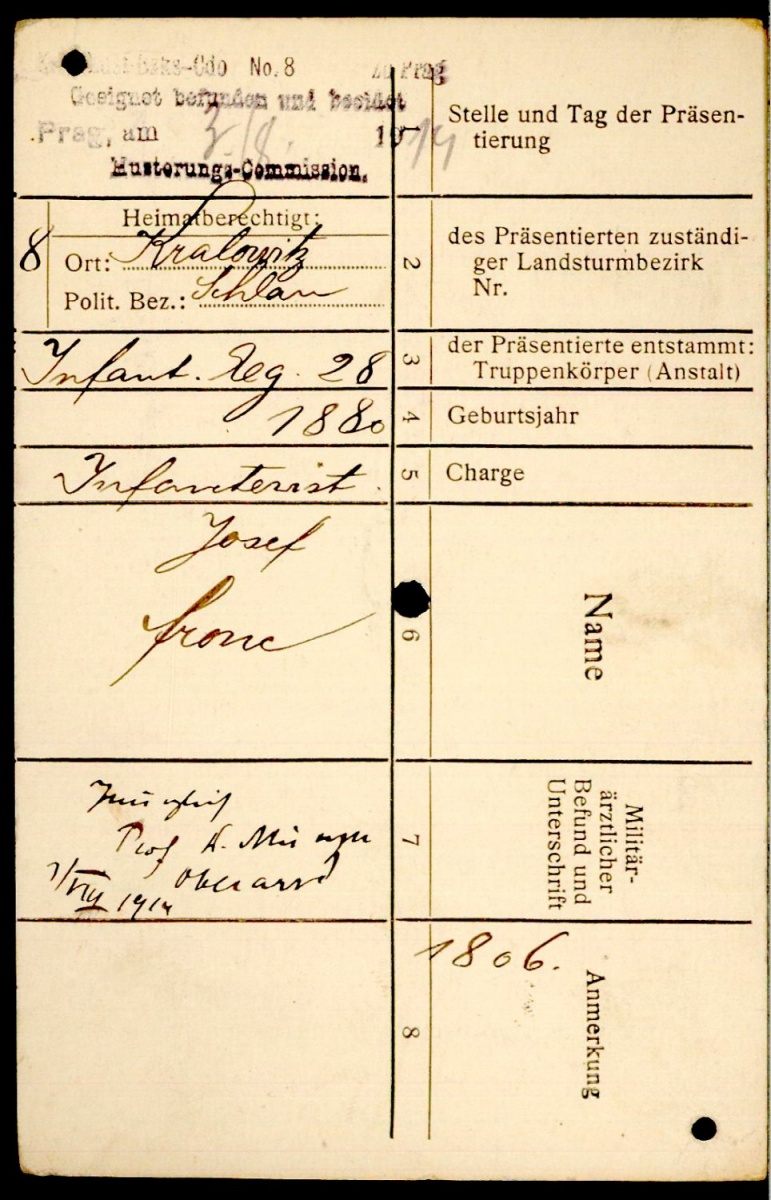 No. 8 zu Prag
Geeignet befunden und beeidet
Prag, am 3./8. 1914
Musterungs-Commission.
1
Stelle und Tag der Präsen-
tierung
8
Heimatberechtigt:
Ort: Kralowitz
Polit. Bez.: Schlan
2
des Präsentierten zuständi-
ger Landsturmbezirk
Nr.
Infant. Reg. 28
3
der Präsentierte entstammt:
Truppenkörper (Anstalt)
1880
4
Geburtsjahr
Infanterist.
5
Charge
Josef
Fronc
6
Name
Prof K.
Oberarzt
VIII 1914
7
Militär-
ärztlicher
Befund und
Unterschrift
1806.
8
Anmerkung